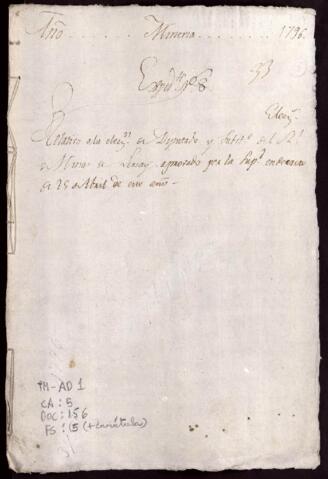 Año . . . . . . Mineria . . . . . . . . 1796.
Expdte. Nº 8
Relativo a la elecⁿ. de Diputado y Substº. del Rˡ.
de Minas de aprovado por la Supˡ.
de 25 de Abril de este año.-
TM-AD 1
CA : 5
DOC : 156
FS : 15 (+ carátula)